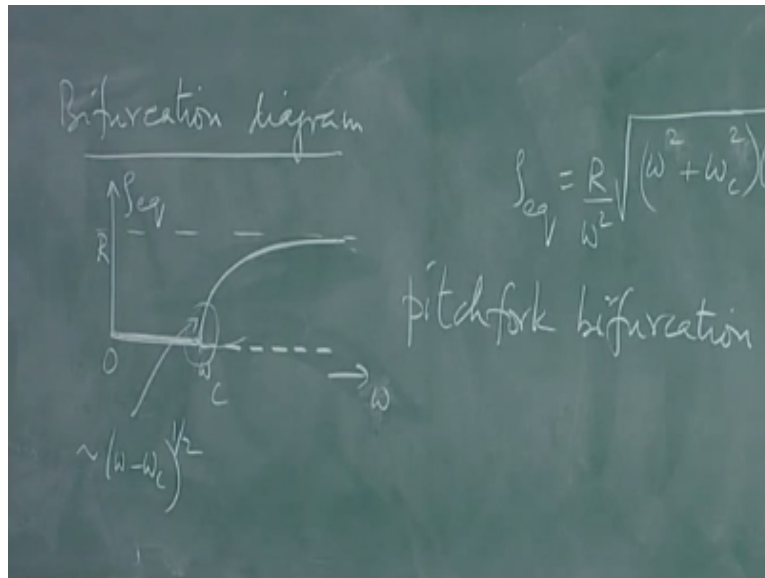 Bifurcation diagram
ρ_eq
R
0
ω_c
ω
~(ω-ω_c)^1/2
ρ_eq = R/ω² √(ω² + ω_c²)(
pitchfork bifurcation